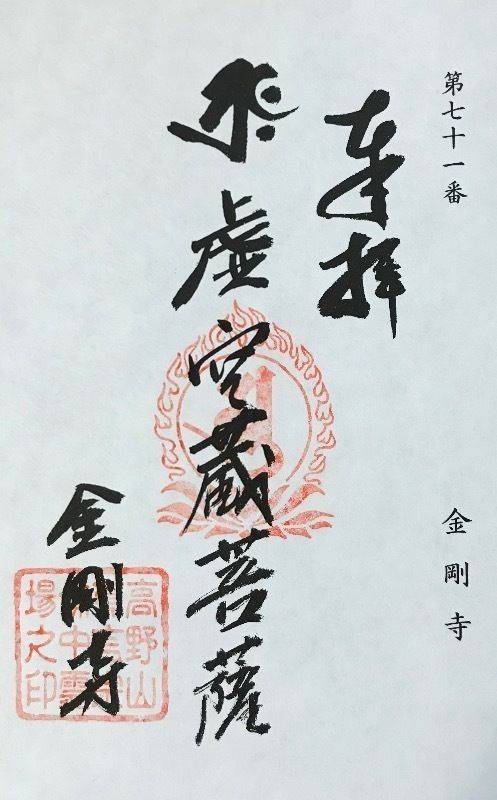 第七十一番
金剛寺
奉拝
虚空蔵菩薩
金剛寺
高野山
場之印